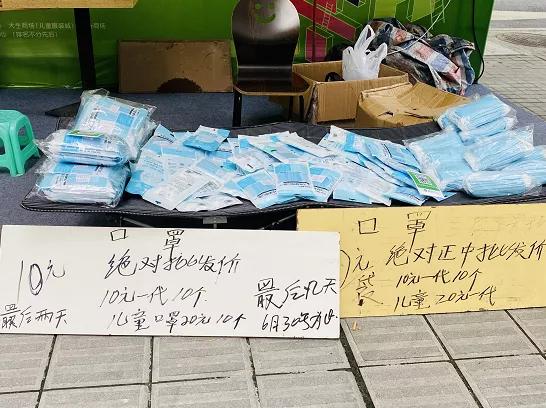 大生商场(儿童服装城)
(排名不分先后)
口罩
10元
绝对批发价
10元一代 10个
最后两天
儿童口罩20元 10个
最后几天
6月30号
口罩
元
袋
绝对正中批发价
10元一代10个
儿童 20元一代